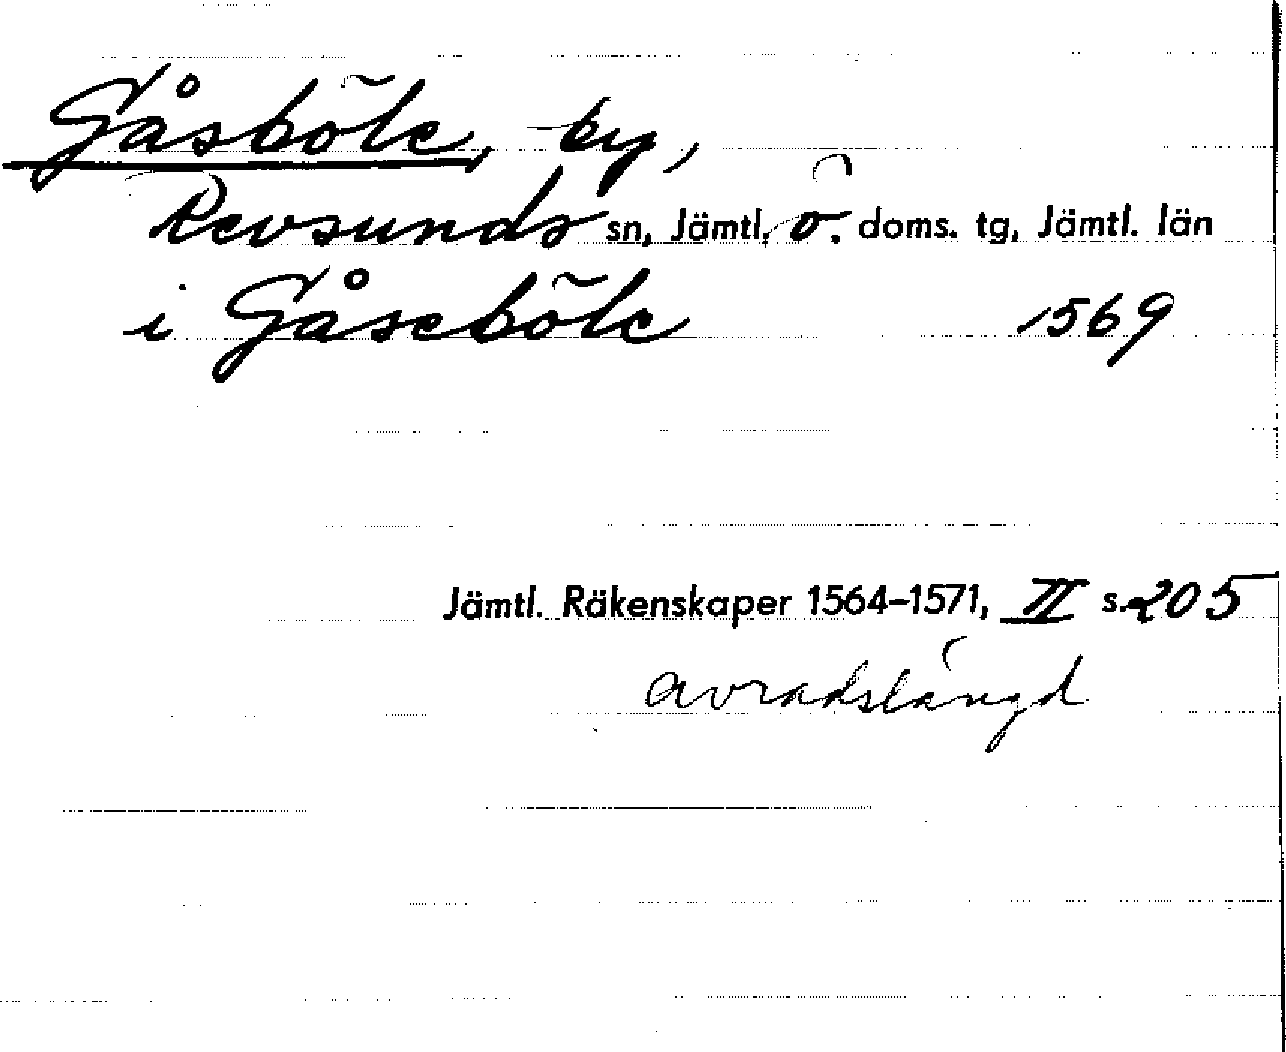 Gåsböle, by,
Revsunds sn, Jämtl. ö. doms. tg, Jämtl. län
i Gåseböle 1569
Jämtl. Räkenskaper 1564-1571, II s. 205
avradslängd